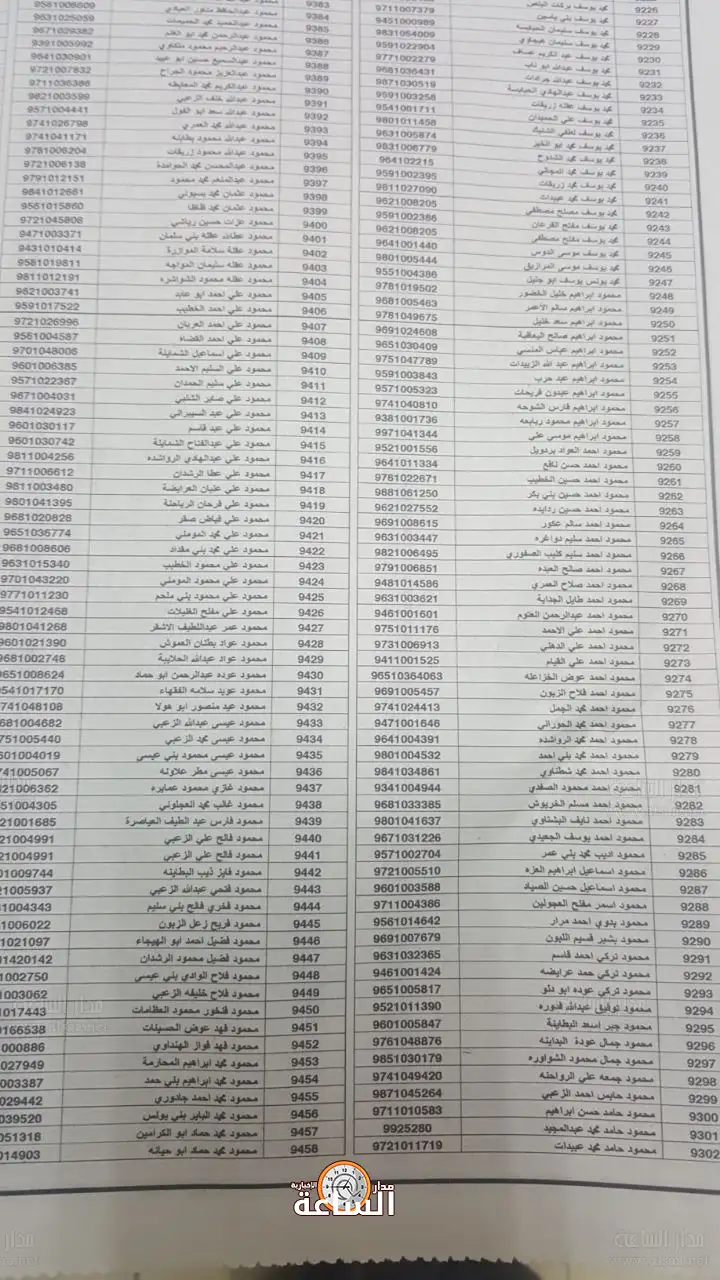 9226 محمد يوسف بركات 9711007379
9227 محمد يوسف بني ياسين 9451000989
9228 محمد يوسف سليمان الحبابسه 9831064009
9229 محمد يوسف سليمان عيجاوي 9591022904
9230 محمد يوسف عبد الكريم عساف 9771002279
9231 محمد يوسف عبدالله ابو ناب 9681036431
9232 محمد يوسف عبدالله جرادات 9871030519
9233 محمد يوسف عبدالهادي الحبابسة 9591003258
9234 محمد يوسف عقله زريقات 9541001711
9235 محمد يوسف علي الحميدان 9801011458
9236 محمد يوسف لطفي الشليك 9631005874
9237 محمد يوسف محمد ابو الخير 9831006779
9238 محمد يوسف محمد الشدوح 984102215
9239 محمد يوسف محمد المجالي 9591002395
9240 محمد يوسف محمد زريقات 9811027090
9241 محمد يوسف محمد عبيدات 9621008205
9242 محمد يوسف مصلح مصطفى 9591002386
9243 محمد يوسف مفلح القرعان 9621008205
9244 محمد يوسف مفلح مصطفى 9641001440
9245 محمد يوسف موسى الدوس 9801005444
9246 محمد يوسف موسى المرازيق 9551004386
9247 محمد يونس يوسف ابو جليل 9781019502
9248 محمود ابراهيم خليل الخضور 9681005463
9249 محمود ابراهيم سالم الأعمر 9781049675
9250 محمود ابراهيم سعد خليل 9691024608
9251 محمود ابراهيم صالح اليعاقبة 9651030409
9252 محمود ابراهيم عباس المنسي 9751047789
9253 محمود ابراهيم عبد الله الزبيدات
9254 محمود ابراهيم عيد حرب 9591003843
9255 محمود ابراهيم عيدون فريحات 9571005323
9256 محمود ابراهيم فارس الشوحه 9741040810
9257 محمود ابراهيم محمود ربابعه 9381001736
9258 محمود ابراهيم موسى علي 9971041344
9259 محمود احمد العواد بردويل 9521001556
9260 محمود احمد حسن نافع 9641011334
9261 محمود احمد حسين الخطيب 9781022671
9262 محمود احمد حسين بني بكر 9881061250
9263 محمود احمد حسين ردايده 9621027552
9264 محمود احمد سالم عكور 9691008615
9265 محمود احمد سليم دواغره 9631003447
9266 محمود احمد سليم كليب الصقوري 9821006495
9267 محمود احمد صالح العبده 9791006851
9268 محمود احمد صلاح العمري 9481014586
9269 محمود احمد طايل الجداية 9631003621
9270 محمود احمد عبدالرحمن العتوم 9461001601
9271 محمود احمد علي الاحمد 9751011176
9272 محمود احمد علي الدهني 9731006913
9273 محمود احمد علي القيام 9411001525
9274 محمود احمد عوض الخزاعله 96510364063
9275 محمود احمد فلاح الزبون 9691005457
9276 محمود احمد محمد الجمل 9741024413
9277 محمود احمد محمد الحوراني 9471001646
9278 محمود احمد محمد الرواشده 9641004391
9279 محمود احمد محمد بني احمد 9801004532
9280 محمود احمد محمد شطناوي 9841034861
9281 محمود احمد محمود الصفدي 9341004944
9282 محمود احمد مسلم الخريوش 9681033385
9283 محمود احمد نايف البشتاوي 9801041637
9284 محمود احمد يوسف الجعيدي 9671031226
9285 محمود اديب محمد بني عمر 9571002704
9286 محمود اسماعيل ابراهيم العزه 9721005510
9287 محمود اسماعيل حسين الصياد 9601003588
9288 محمود اسمر مفلح العجولين 9711004386
9289 محمود بدوي احمد مرار 9561014642
9290 محمود بشير قسيم الليون 9691007679
9291 محمود تركي احمد قاسم 9631032365
9292 محمود تركي حمد عرايضه 9461001424
9293 محمود تركي عوده ابو دلو 9651005817
9294 محمود توفيق عبدالله قدوره 9521011390
9295 محمود جبر أسعد البطاينة 9601005847
9296 محمود جمال عودة البداينه 9761048876
9297 محمود جمال محمود الشواوره 9851030179
9298 محمود جمعه علي الرواحله 9741049420
9299 محمود حابس احمد الزعبي 9871045264
9300 محمود حامد حسن ابراهيم 9711010583
9301 محمود حامد محمد عبدالمجيد 9925280
9302 محمود حامد محمد عبيدات 9721011719
9383 محمود عبدالحافظ منور العبادي 9561008609
9384 محمود عبدالحميد محمد الحميمات 9631025059
9385 محمود عبدالرحمن محمد ابو الغنم 9671029382
9386 محمود عبدالرحيم محمود ملكاوي 9391005992
9387 محمود عبدالسميع حسين ابو عبيد 9641030901
9388 محمود عبدالعزيز محمود الجراح 9721007832
9389 محمود عبدالكريم محمد المعايطه 9711036386
9390 محمود عبدالله خلف الزعبي 9821003599
9391 محمود عبدالله سعد ابو الفول 9571004441
9392 محمود عبدالله محمد العمري 9741026798
9393 محمود عبدالله محمود بطاينه 9741041171
9394 محمود عبدالله محمود زريقات 9781006204
9395 محمود عبدالمحسن محمد الحوامدة 9721006138
9396 محمود عبدالمنعم محمد محمود 9791012151
9397 محمود عثمان محمد بسيوني 9841012661
9398 محمود عثمان محمد ظاظا 9561015860
9399 محمود عزات حسين رياشي 9721045808
9400 محمود عطاالله عقله بني سلمان 9471003371
9401 محمود عقلة سلامة الموازرة 9431010414
9402 محمود عقله سليمان المواجه 9581019811
9403 محمود عقله محمود الشواشره 9811012191
9404 محمود علي احمد ابو عابد 9621003741
9405 محمود علي احمد الخطيب 9591017522
9406
9407 محمود علي احمد العريان 9721026996
9408 محمود علي احمد القضاه 9561004587
9409 محمود علي اسماعيل الشماينة 9701048006
9410 محمود علي السليم الاحمد 9601006385
9411 محمود علي سليم الحمدان 9571022367
9412 محمود علي صابر الشلبي 9671004031
9413 محمود علي عبد السيبراني 9841024923
9414 محمود علي عبد قاسم 9601030117
9415 محمود علي عبدالفتاح الشماينة 9601030742
9416 محمود علي عبدالهادي الرواشده 9811004256
9417 محمود علي عطا الرشدان 9711006612
9418 محمود علي عليان العرايضة 9811003480
9419 محمود علي فرحان الرياحنة 9801041395
9420 محمود علي فياض صقر 9681020828
9421 محمود علي محمد المومني 9651036774
9422 محمود علي محمد بني مقداد 9681008606
9423 محمود علي محمود الخطيب 9631015340
9424 محمود علي محمود المومني 9701043220
9425 محمود علي محمود بني ملحم 9771011230
9426 محمود علي مفلح الخليلات 9541012468
9427 محمود عمر عبداللطيف الاشقر 9801041268
9428 محمود عواد بطنان العموش 9601021390
9429 محمود عواد عبدالله الحلايبة 9681002748
9430 محمود عوده عبدالرحمن ابو حماد 9651008624
9431 محمود عويد سلامه الفقهاء 541017170
9432 محمود عيد منصور ابو هولا 741048108
9433 محمود عيسى عبدالله الزعبي 681004682
9434 محمود عيسى محمد الزعبي 751005440
9435 محمود عيسى محمود بني عيسى 601004019
9436 محمود عيسى مطر علاونه 741005067
9437 محمود غازي محمود عمايره 21006362
9438 محمود غالب محمد العجلوني 51004305
9439 محمود فارس عبد الطيف العياصرة 21001685
9440 محمود فالح علي الزعبي 21004991
9441 محمود فالح علي الزعبي 21004991
9442 محمود فايز ذيب البطاينه 01009744
9443 محمود فتحي عبدالله الزعبي 21005937
9444 محمود فخري فالح بني سليم 1004343
9445 محمود فريح زعل الزبون 1006022
9446 محمود فضيل احمد ابو الهيجاء 1021097
9447 محمود فضيل محمود الرشدان 01420142
9448 محمود فلاح الوادي بني عيسى 1002750
9449 محمود فلاح خليفه الزعبي 1003062
9450 محمود فنخور محمود العظامات 1017443
9451 محمود فهد عوض الحسينات 0166538
9452 محمود فهد فواز الهنداوي 000886
9453 محمود محمد ابراهيم المحارمة 027949
9454 محمود محمد ابراهيم بني حمد 003387
9455 محمود محمد احمد جادوري 029442
9456 محمود محمد الباير بني يونس 039520
9457 محمود محمد حماد ابو الكرامين 051318
9458 محمود محمد حماد ابو حيانه 014903
مدار الساعة الاخبارية